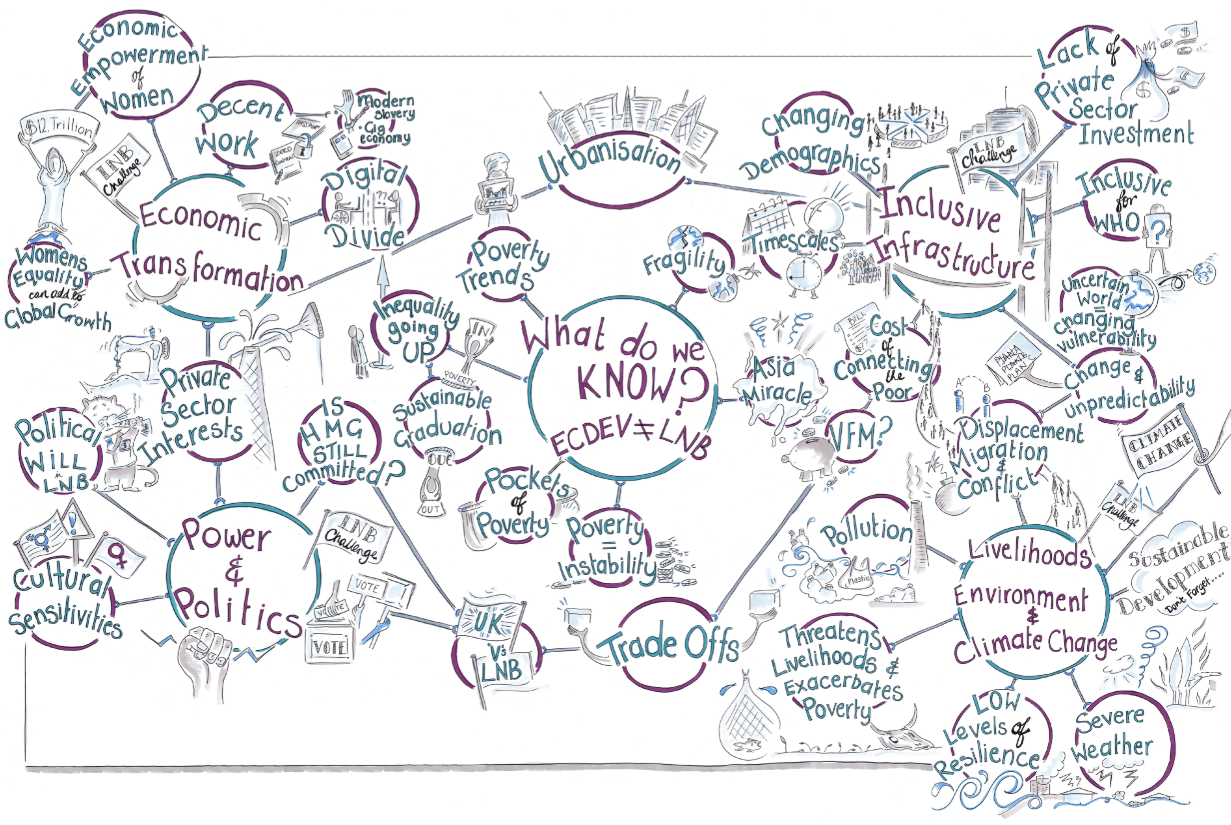 Economic
Empowerment
of
Women
$12 Trillion
LNB
Challenge
Decent
Work
Modern
Slavery
• Gig
economy
Digital
Divide
Economic
Transformation
Womens
Equality
can add to
Global Growth
Private
Sector
Interests
Political
WILL
LNB
Cultural
Sensitivities
!
Power
&
Politics
LNB
Challenge
VOTE
VOTE
IS
HMG
STILL
Committed?
UK
Vs
LNB
Trade Offs
Urbanisation
Poverty
Trends
Inequality
going
UP
IN
POVERTY
Sustainable
Graduation
OUT
Pockets
of
Poverty
Poverty
=
Instability
What do we
KNOW?
ECDEV ≠ LNB
Fragility
Asia
Miracle
VFM?
Cost
of
Connecting
the
Poor
BILL
Timescales
Changing
Demographics
LNB
Challenge
Inclusive
Infrastructure
Lack of
Private
Sector
Investment
$
$
Inclusive
for
WHO
?
Uncertain
World
=
Changing
vulnerability
Change &
unpredictability
PLAN
A
B
Displacement
Migration
&
Conflict
CLIMATE
CHANGE
LNB
Challenge
Pollution
Plastic
Livelihoods
Environment
&
Climate Change
Sustainable
Development
Don't Forget....
Threatens
Livelihoods &
Exacerbates
Poverty
LOW
Levels of
Resilience
Severe
Weather